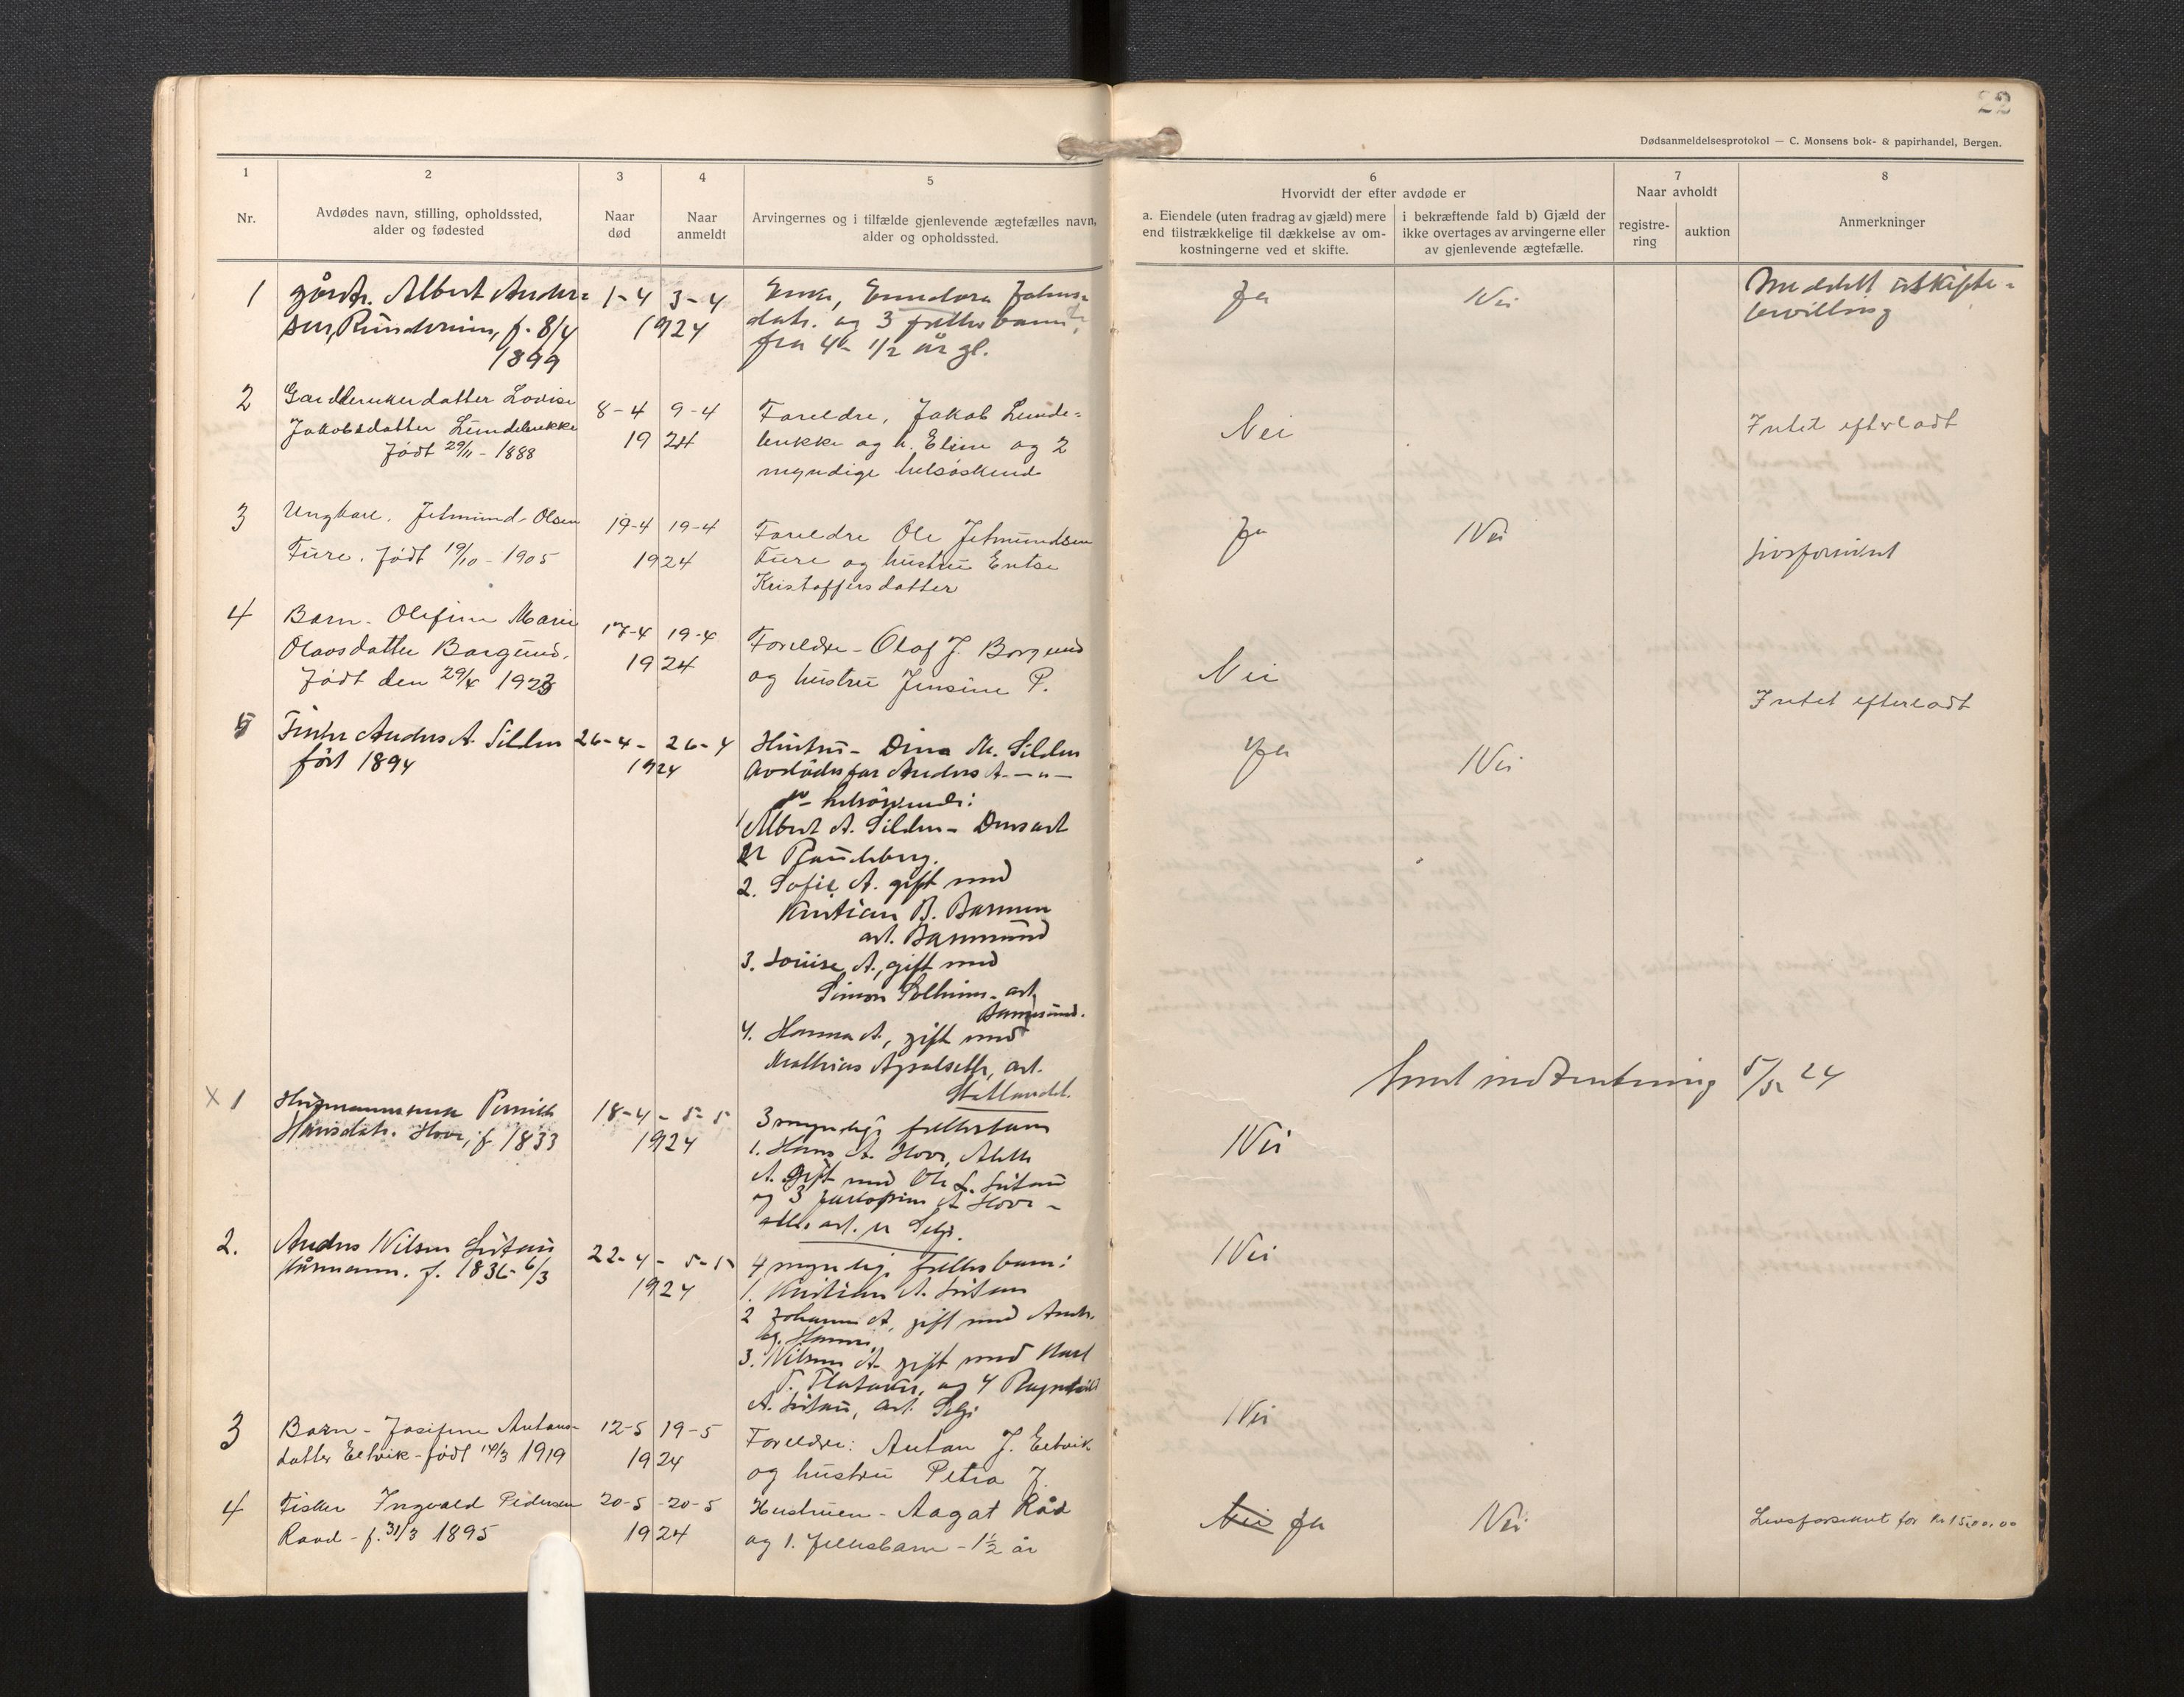 22
Dødsanmeldelsesprotokol — C. Monsens bok- & papirhandel, Bergen.
1
2
3
4
5
6
7
8
Nr.
Avdødes navn, stilling, opholdssted,
alder og fødested
Naar
død
Naar
anmeldt
Arvingernes og i tilfælde gjenlevende ægtefælles navn,
alder og opholdssted.
Hvorvidt der efter avdøde er
a. Eiendele (uten fradrag av gjæld) mere
end tilstrækkelige til dækkelse av om-
kostningerne ved et skifte.
i bekræftende fald b) Gjæld der
ikke overtages av arvingerne eller
av gjenlevende ægtefælle.
Naar avholdt
registre-
ring
auktion
Anmerkninger
1
Albert Ander=
sen, Rundereim, f. 8/4
1899
1-4 3-4
1924
Enke, Johns=
datr. og 3 felles barn
fra 4 - 1/2 år gl.
Ja
Nei
Meddelt uskifte=
bevilling
2
Lovise
Jakobsdatter Lundebrekke
Født 29/11 - 1888
8-4 9-4
1924
Foreldre, Jakob Lunde=
brekke og h. Eline og 2
myndige helsøskend
Nei
Intet efterladt
3
Ungkarl. Jetmund Olsen
Fure. Født 19/10 - 1905
19-4 19-4
1924
Foreldre Ole Jetmundsen
Fure og hustru
Kristoffersdatter
Ja
Nei
Livsforsikret
4
Barn - Olefine Marie
Olavsdatter Borgund.
Født den 29/4 1923
17-4 19-4
1924
Foreldre - Olaf J. Borgund
og hustru Jensine P.
Nei
Intet efterladt
5
Fisker Anders A. Silden
født 1894
26-4 - 26-4
1924
Hustru - Dina M. Silden
Avdødes far Anders A. - " -
helsøskende:
1 Albert A. Silden -
Raudeberg.
2. Sofie A. gift med
Kristian B. Barmen
adr. Barmsund
3. Louise A., gift med
Simon Solheim - adr.
Barmsund.
4. Hanna A., gift med
Mathias Apalseth, adr.
Statlandet.
Ja
Nei
Sendt indberetning 5/5 24
x 1
Husmannsenke Pernille
Hansdatr. Hove, f. 1833
18-4 - 5-5
1924
3 myndige fellesbarn
1. Hans A. Hove,
A. gift med Ole L.
og 3 A Hove -
alle adr. Selje.
Nei
2.
Anders Nilsen
Kårmann. f. 1836 - 6/3
22-4 - 5-5
1924
4 myndige fellesbarn:
1. Kristian A.
2 Johanne A, gift med
3. A gift med Karl
og 4 Ragnhild
A. adr. Selje
Nei
3
Barn - Josefine Antons-
datter Eltvik - født 14/3 1919
12-5 19-5
1924
Foreldre: Anton J. Eltvik
og hustru Petra J.
Nei
4
Fisker Ingvald Pedersen
Raad - f. 31/3 1895
20-5 - 20-5
1924
Hustruen - Aagot Råd
og 1. fellesbarn - 1 1/2 år
Nei Ja
Nei
Livsforsikret for kr 1500.00